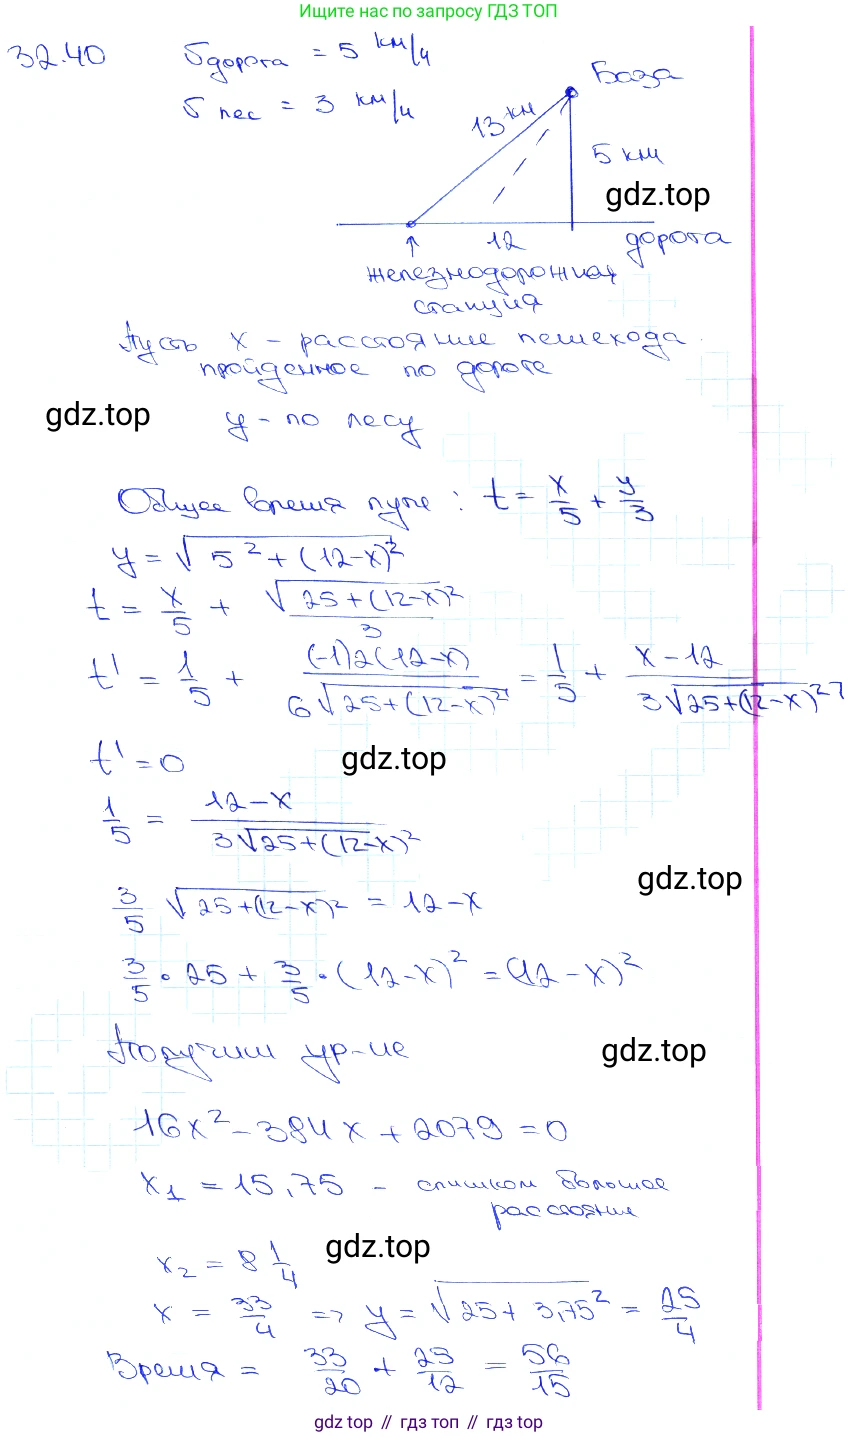 Ищите нас по запросу ГДЗ ТОП
32.40 υ дорога = 5 км/ч
υ лес = 3 км/ч
База
13 км
5 км
gdz.top
12
дорога
железнодорожная
станция
Пусть x - расстояние пешехода
пройденное по дороге
gdz.top
y - по лесу
Общее время пути : t = x/5 + y/3
y = √(5² + (12-x)²)
t = x/5 + √(25+(12-x)²)/3
t' = 1/5 + (-1)2(12-x)/(6√(25+(12-x)²)) = 1/5 + (x-12)/(3√(25+(12-x)²))
t' = 0
gdz.top
1/5 = (12-x)/(3√(25+(12-x)²))
gdz.top
3/5 √(25+(12-x)²) = 12-x
3/5 • 25 + 3/5 • (12-x)² = (12-x)²
Получим ур-ие
gdz.top
16x² - 384x + 2079 = 0
x₁ = 15,75 - слишком большое
расстояние
gdz.top
x₂ = 8 1/4
x = 33/4 => y = √(25 + 3,75²) = 25/4
Время = 33/20 + 25/12 = 56/15
gdz top // гдз топ // gdz top